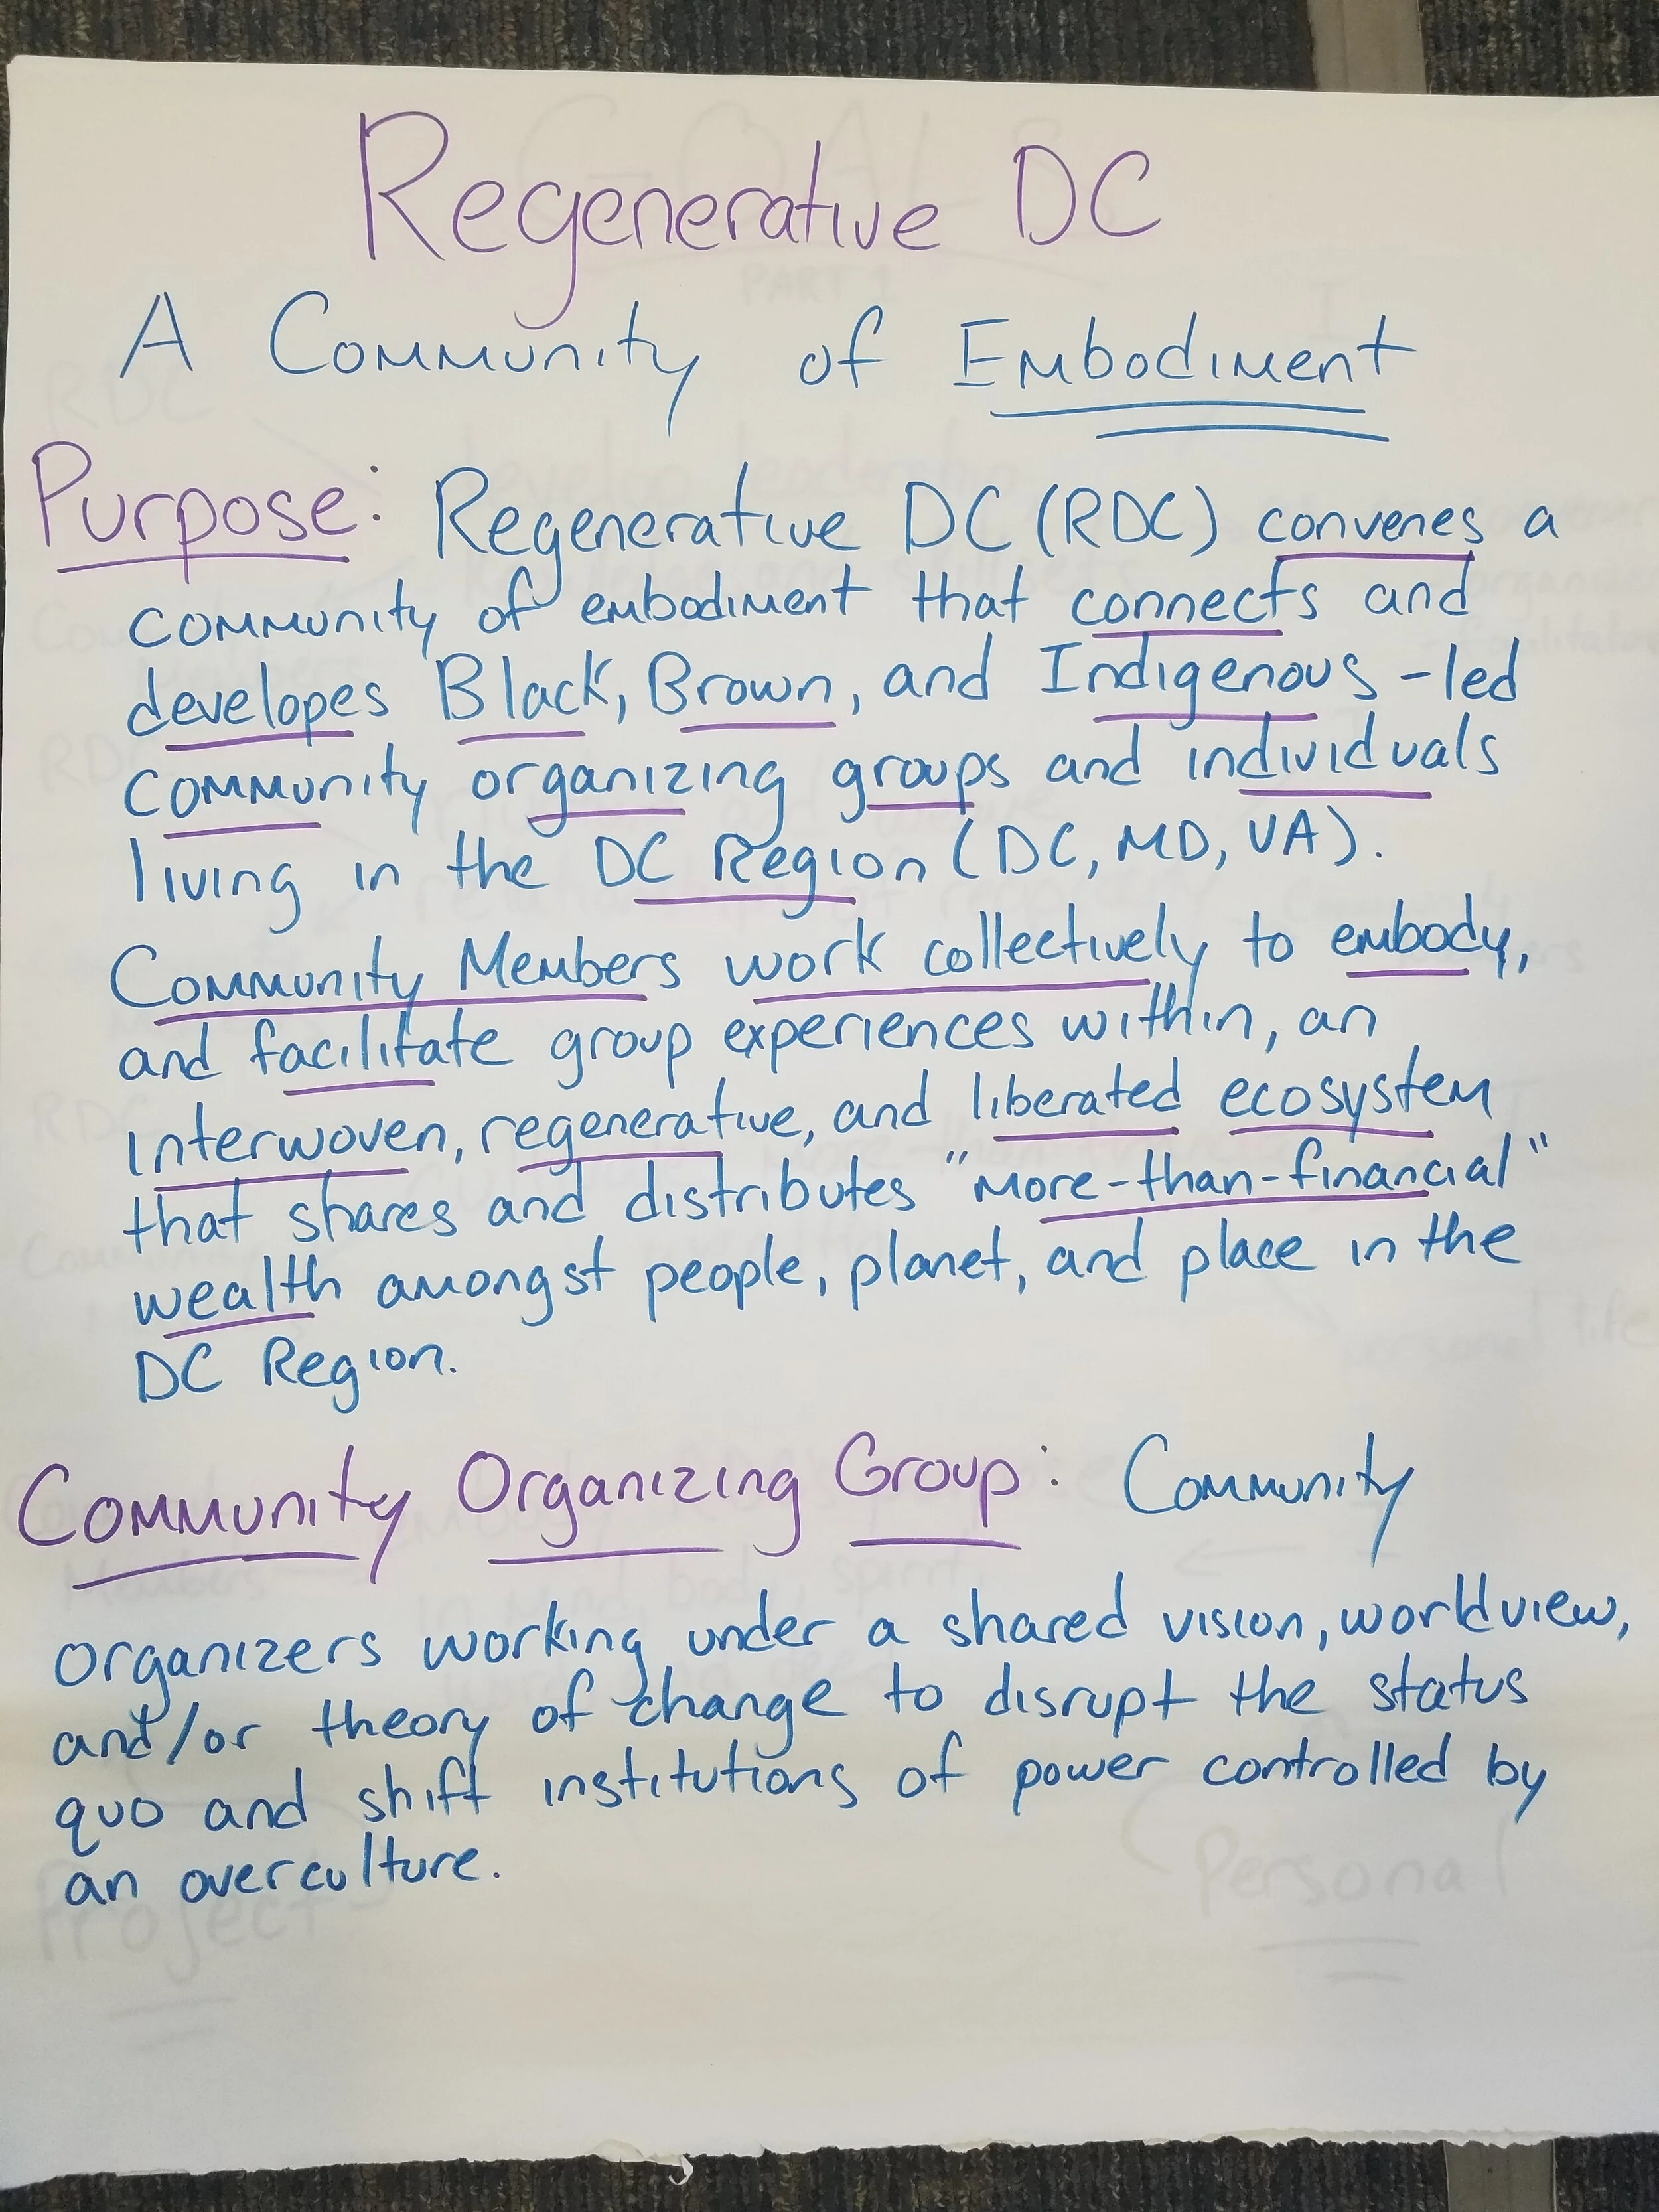 Regenerative DC
A Community of Embodiment
Purpose: Regenerative DC (RDC) convenes a
community of embodiment that connects and
developes Black, Brown, and Indigenous-led
community organizing groups and individuals
living in the DC Region (DC, MD, VA).
Community Members work collectively to embody,
and facilitate group experiences within, an
interwoven, regenerative, and liberated ecosystem
that shares and distributes "more-than-financial"
wealth amongst people, planet, and place in the
DC Region.
Community Organizing Group: Community
organizers working under a shared vision, worldview,
and/or theory of change to disrupt the status
quo and shift institutions of power controlled by
an overculture.
Project
Personal